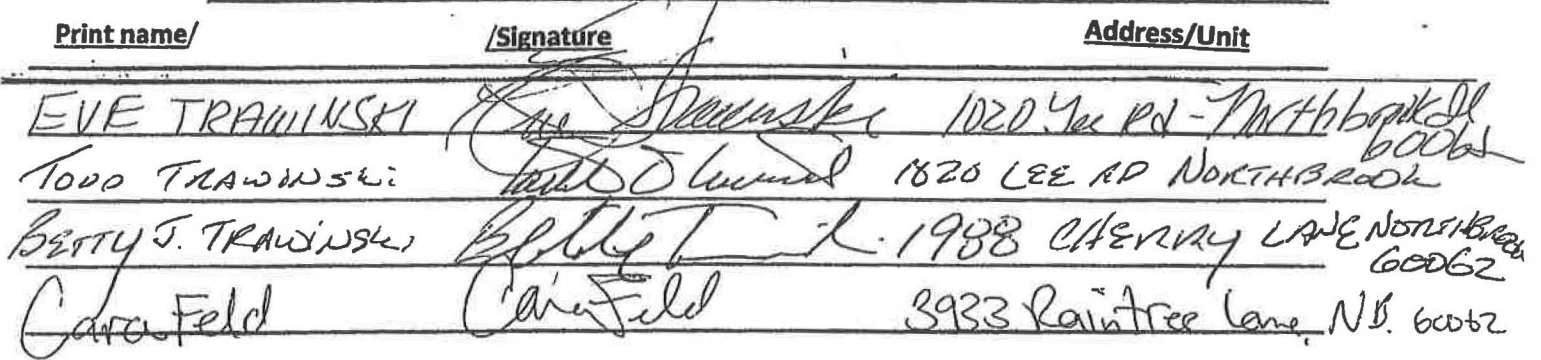 Print name/ /Signature Address/Unit
EVE TRAWINSKI Eve Trawinski 1020 Lee Rd - Northbrook Il
60062
TODD TRAWINSKI 1820 LEE RD NORTHBROOK
BETTY J. TRAWINSKI Betty 1988 CHERRY LANE NORTHBROOK
60062
Cara Feld Cara Feld 3933 Raintree Lane, NB. 60062